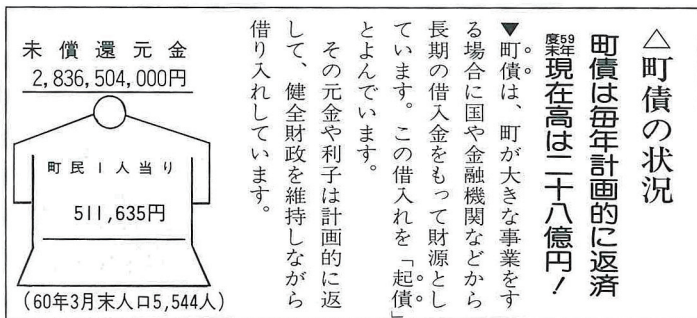 △町債の状況
町債は毎年計画的に返済
59年度末現在高は二十八億円!
▼町債は、町が大きな事業をす
る場合に国や金融機関などから
長期の借入金をもって財源とし
ています。この借入れを「起債」
とよんでいます。
その元金や利子は計画的に返
して、健全財政を維持しながら
借り入れしています。
未償還元金
2,836,504,000円
町民1人当り
511,635円
(60年3月末人口5,544人)